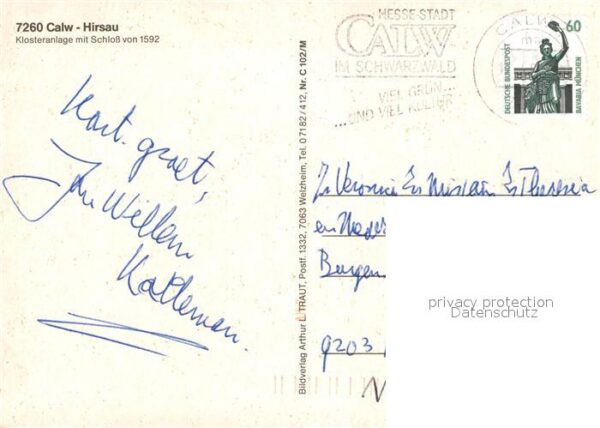 7260 Calw - Hirsau
Klosteranlage mit Schloß von 1592
MESSE-STADT
CALW
IM SCHWARZWALD
VIEL GRÜN...
...UND VIEL KULTUR
CALW
60
DEUTSCHE BUNDESPOST
BAVARIA MÜNCHEN
Hart. groet,
Jan Willem
Bildverlag Arthur L. TRAUT, Postf. 1332, 7063 Welzheim, Tel. 07182/412, Nr. C 102/M
Zr Veronica Zr Miriam Zr Theresia
en
9203
N
privacy protection
Datenschutz